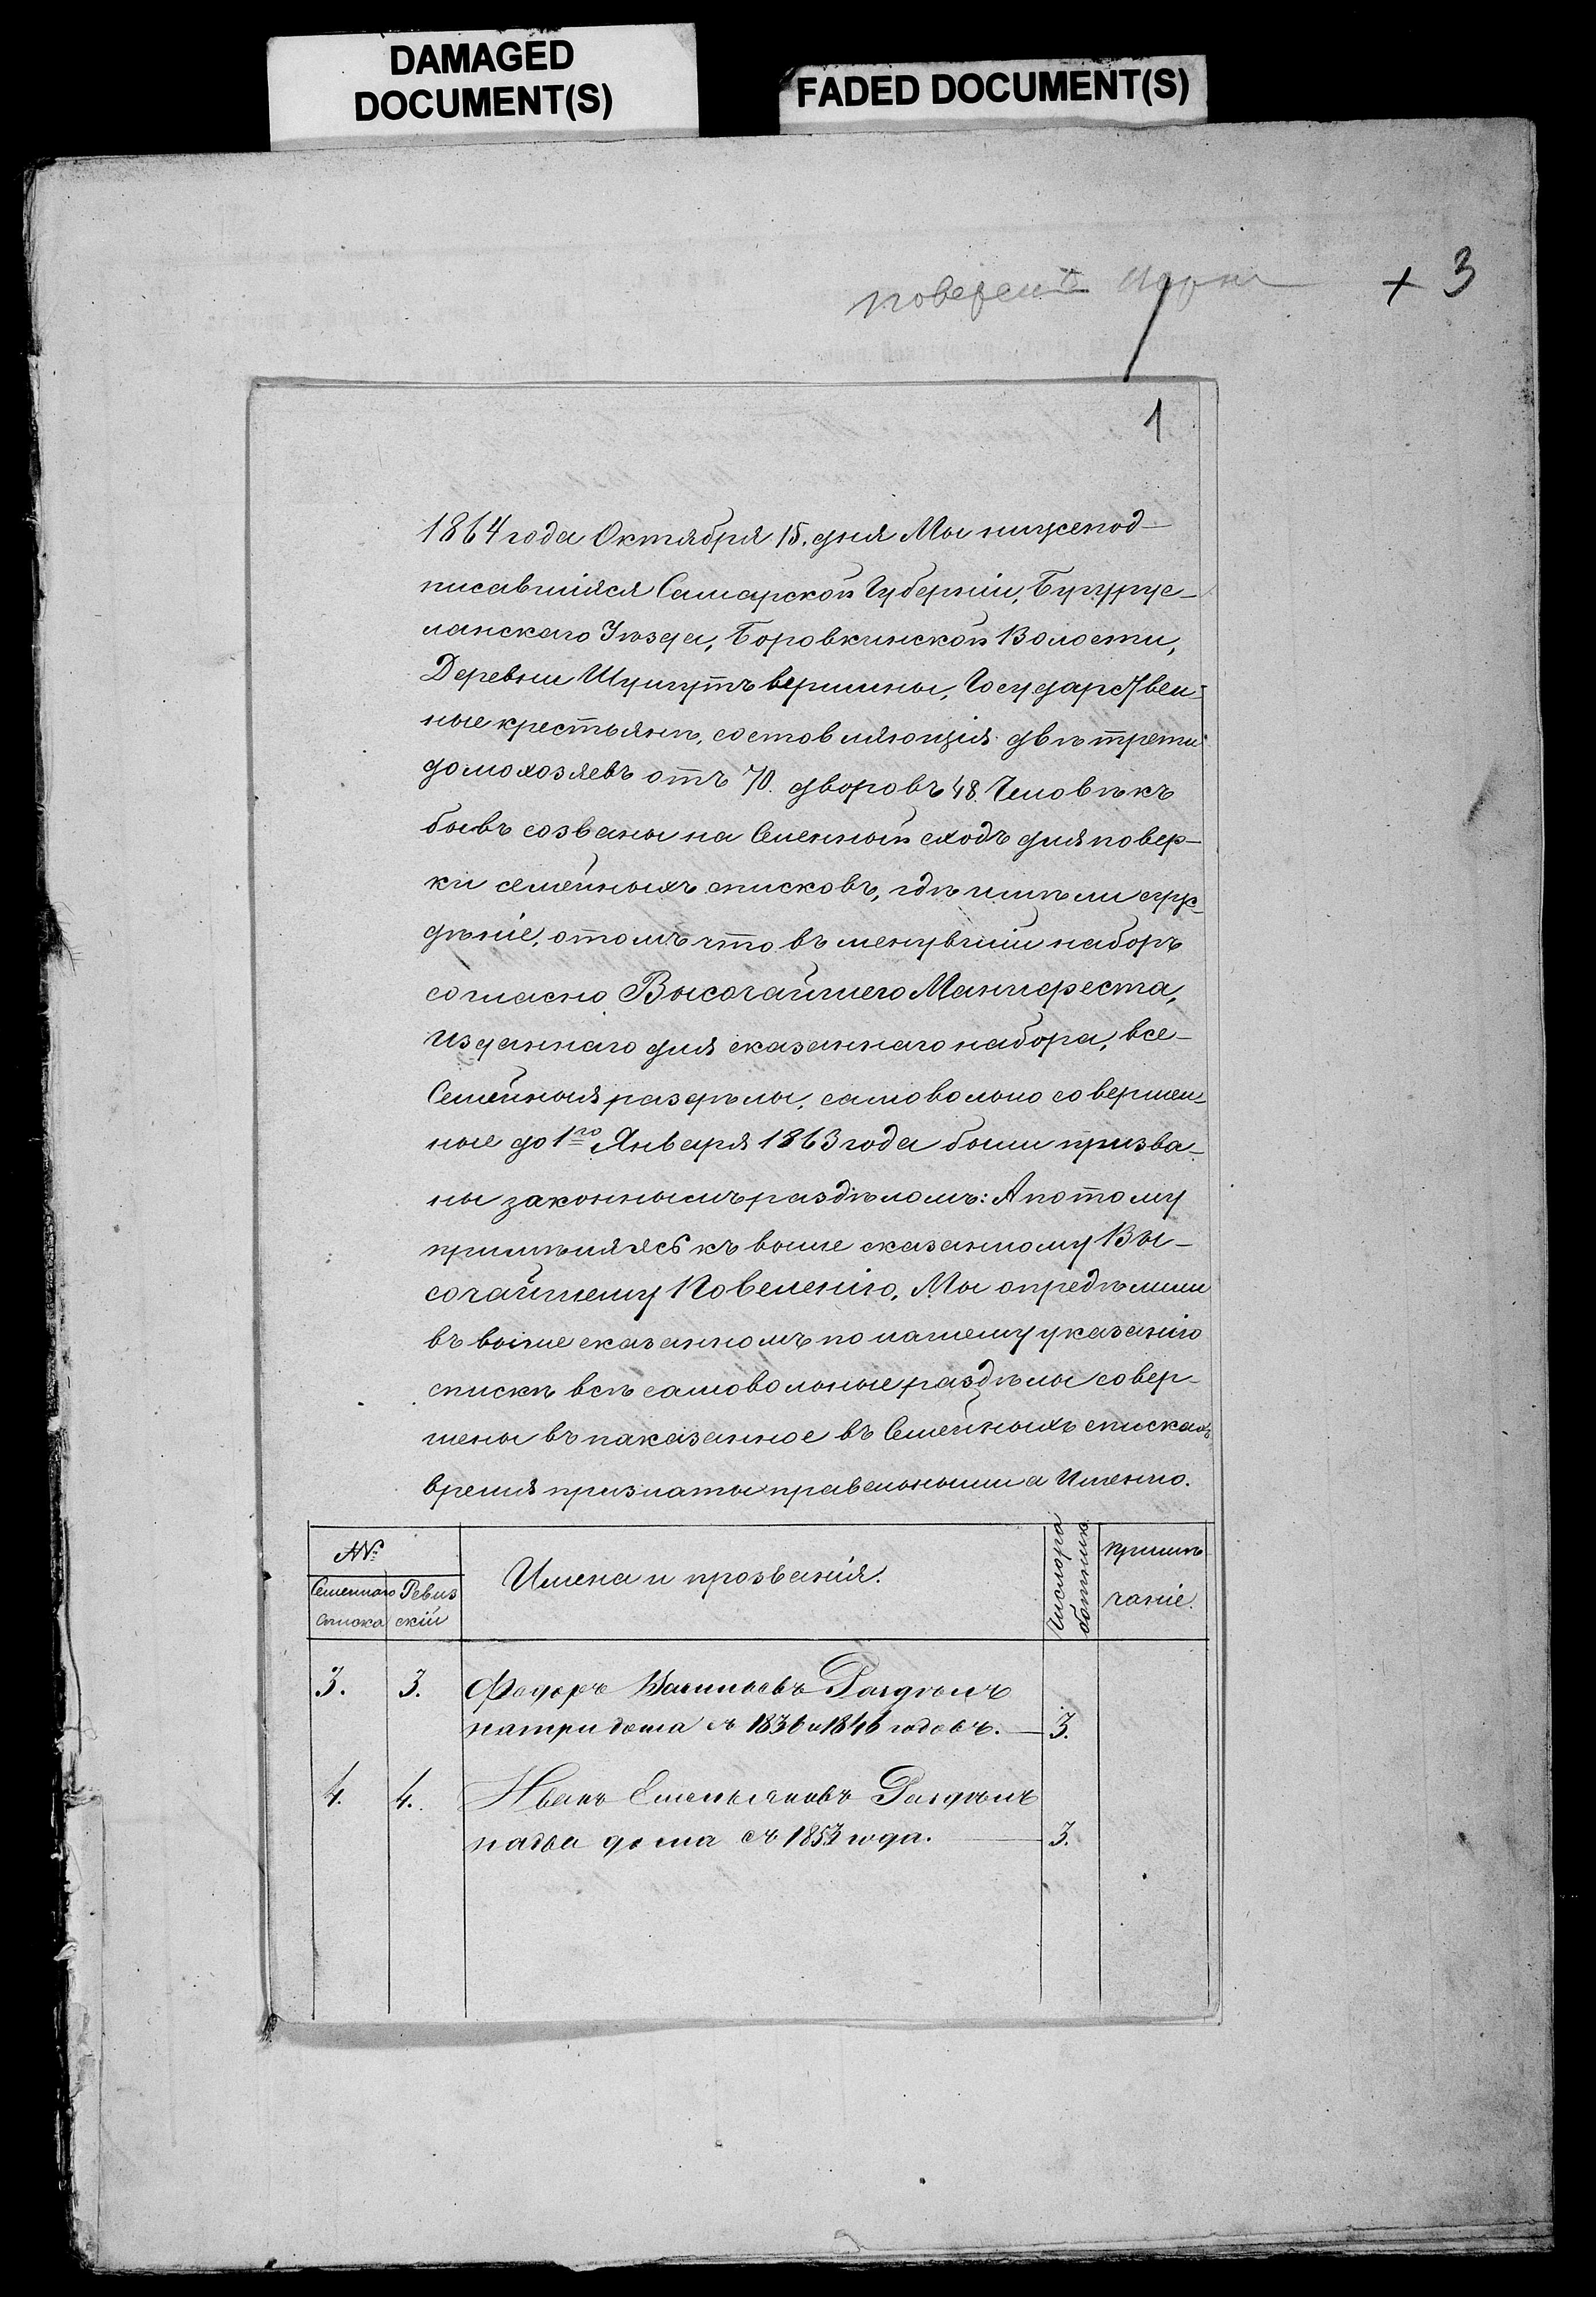 DAMAGED
DOCUMENT(S)
FADED DOCUMENT(S)
+ 3
1
1864 года Октября 15. дня Мы нижепод-
писавшійся Самарской Губерніи, Бугурус-
ланскаго Уѣзда, Боровкинской Волости,
Деревни Шунгутъ вершины, Государствен-
ные крестьянѣ, составляющія двѣ трети
домохозяевъ отъ 70. дворовъ 48. Человѣкъ
бывъ созваны на Сменный сходъ для повер-
ки семейныхъ списковъ, гдѣ имѣли суж-
дѣніе, отомъ что въ менувшій наборъ
согласно Высочайшего Манифеста,
изданнаго для сказаннаго набора, все-
Семейныя раздѣлы, самовольно совершен-
ные до 1го Января 1863 года были призва-
ны законнымъ раздѣломъ: А потому
примѣняясь къ выше сказанному Вы-
сочайшему Повеленію, Мы опредѣлили
въ выше сказанномъ по нашему указанію
спискѣ всѣ самовольные раздѣлы совер-
шены въ паказанное въ Семейныхъ спискахъ
время признаты правельными а Именно.
№№
Семеннаго
списка
Ревиз
скій
Имена и прозванія.
Число ра
ботник
Примѣ
чаніе.
3. 3. Федоръ Васильевъ Раздѣлъ
натри дома съ 1836 и 1846 годовъ. — 3.
4. 4. Иванъ Емельяновъ Раздѣлъ
надва дома съ 1853 года. — 3.